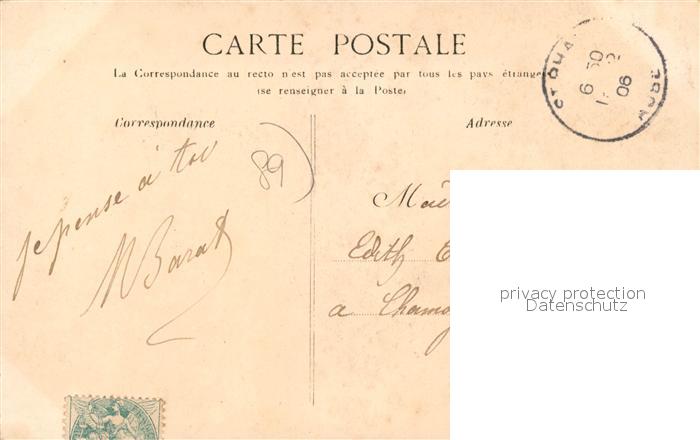 CARTE POSTALE
La Correspondance au recto n'est pas acceptée par tous les pays étrange
(se renseigner à la Poste)
Correspondance
Adresse
6 50
06
89
je pense à toi
M Barat
Edith
a Cham
privacy protection
Datenschutz